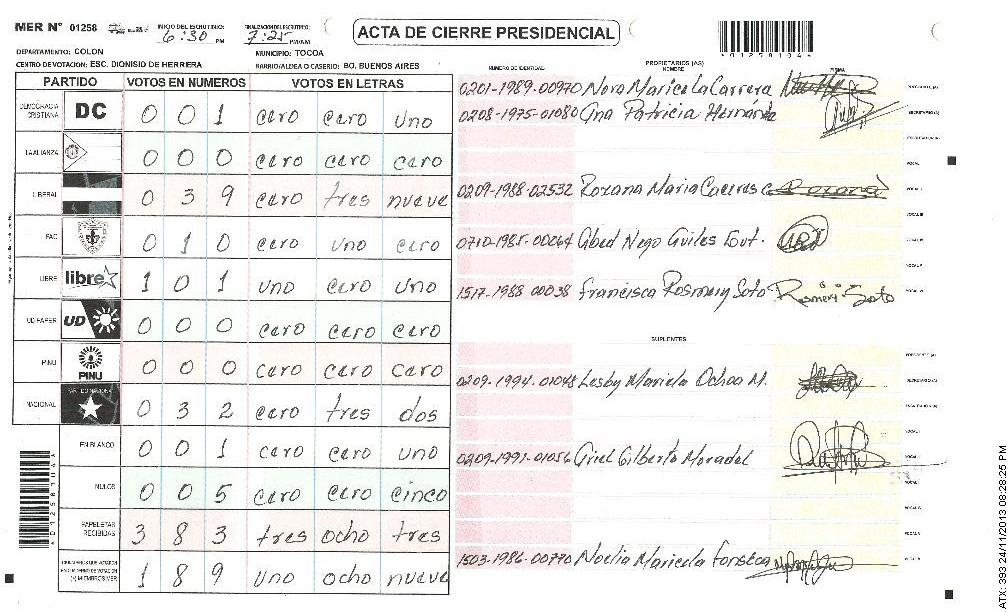 MER N° 01258 INICIO DEL ESCRUTINIO: 6:30 PM FINALIZACION DEL ESCRUTINIO: 7:25 PM/AM
ACTA DE CIERRE PRESIDENCIAL
*01258104*
DEPARTAMENTO: COLON MUNICIPIO: TOCOA
CENTRO DE VOTACION: ESC. DIONISIO DE HERRERA BARRIO/ALDEA O CASERIO: BO. BUENOS AIRES
PARTIDO VOTOS EN NUMEROS VOTOS EN LETRAS
DEMOCRACIA CRISTIANA DC 0 0 1 cero cero uno
LA ALIANZA 0 0 0 cero cero cero
LIBERAL 0 3 9 cero tres nueve
PAC 0 1 0 cero uno cero
LIBRE libre 1 0 1 uno cero uno
UD-FAPER UD 0 0 0 cero cero cero
PINU PINU 0 0 0 cero cero cero
NACIONAL 0 3 2 cero tres dos
EN BLANCO 0 0 1 cero cero uno
NULOS 0 0 5 cero cero cinco
PAPELETAS RECIBIDAS 3 8 3 tres ocho tres
(+) MIEMBROS MER 1 8 9 uno ocho nueve
NUMERO DE IDENTIDAD PROPIETARIOS (AS) NOMBRE FIRMA
0201-1989-00970 Nora Maricela Carrera
0208-1975-01080 Ana Patricia Hernánde
0209-1988-02532 Roxana Maria Caceres
0710-1985-00264 Abed Nego Aviles
1517-1988 00038 Francisca Rosmery Soto Rosmery Soto
SUPLENTES
0209-1994-01048 Lesby Mariela Ochoa M.
0209-1991-01056 Ariel Gilberto Moradel
1503-1986-00770 Noelia Maricela Fonseca
ATX: 393 24/11/2013 08:28:25 PM